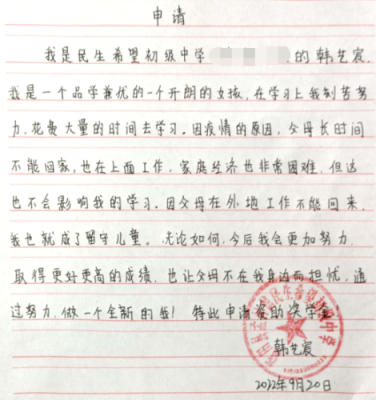 申请
我是民生希望初级中学 的韩艺宸,
我是一个品学兼优的一个开朗的女孩,在学习上我刻苦努
力,花费大量的时间去学习。因疫情的原因,父母长时间
不能回家,也在上面工作,家庭经济也非常困难,但这
也不会影响我的学习。因父母在外地工作不能回来,
我也就成了留守儿童。无论如何,今后我会更加努力,
取得更好更高的成绩,也让父母不在我身边而担忧,通
过努力,做一个全新的我!特此申请资助决学金
韩艺宸
2022年9月20日